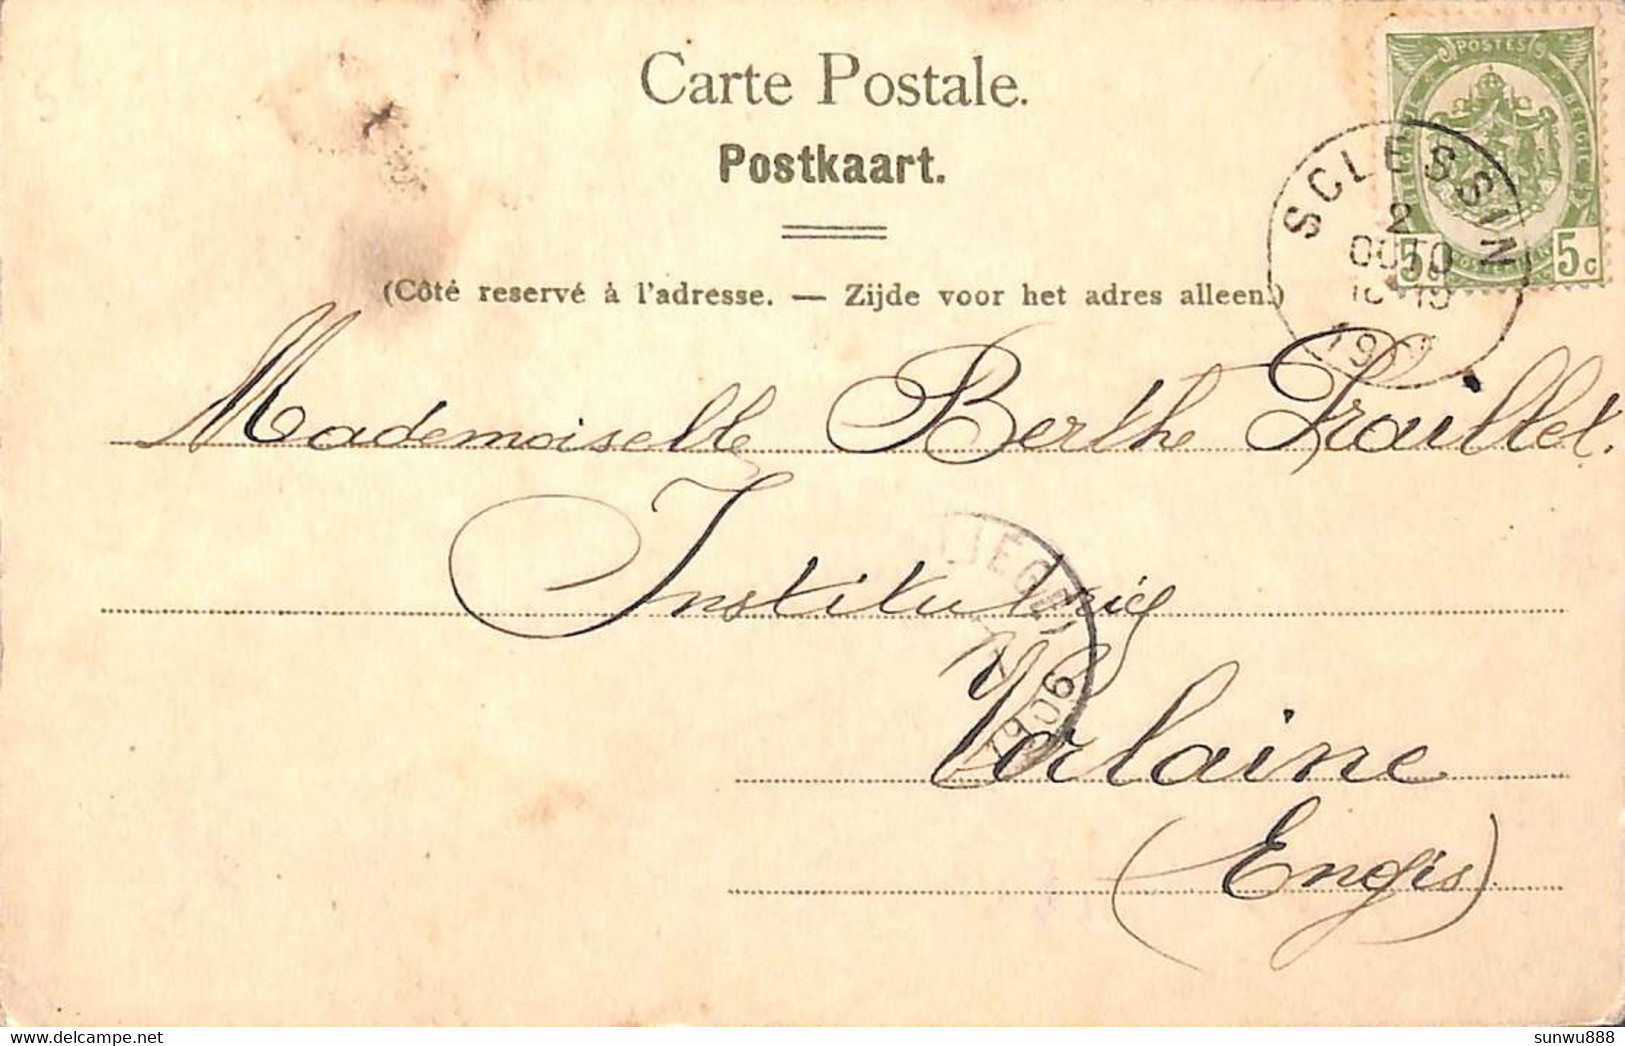 Carte Postale.
Postkaart.
(Côté reservé à l'adresse. — Zijde voor het adres alleen.)
POSTES
BELGIQUE BELGIE
5 5c
SCLESSIN
2
OCTO
190
Mademoiselle Berthe Praillet.
Institutrice
LIÉGE
1906
Verlaine
(Engis)
delcampe.net
sunwu888